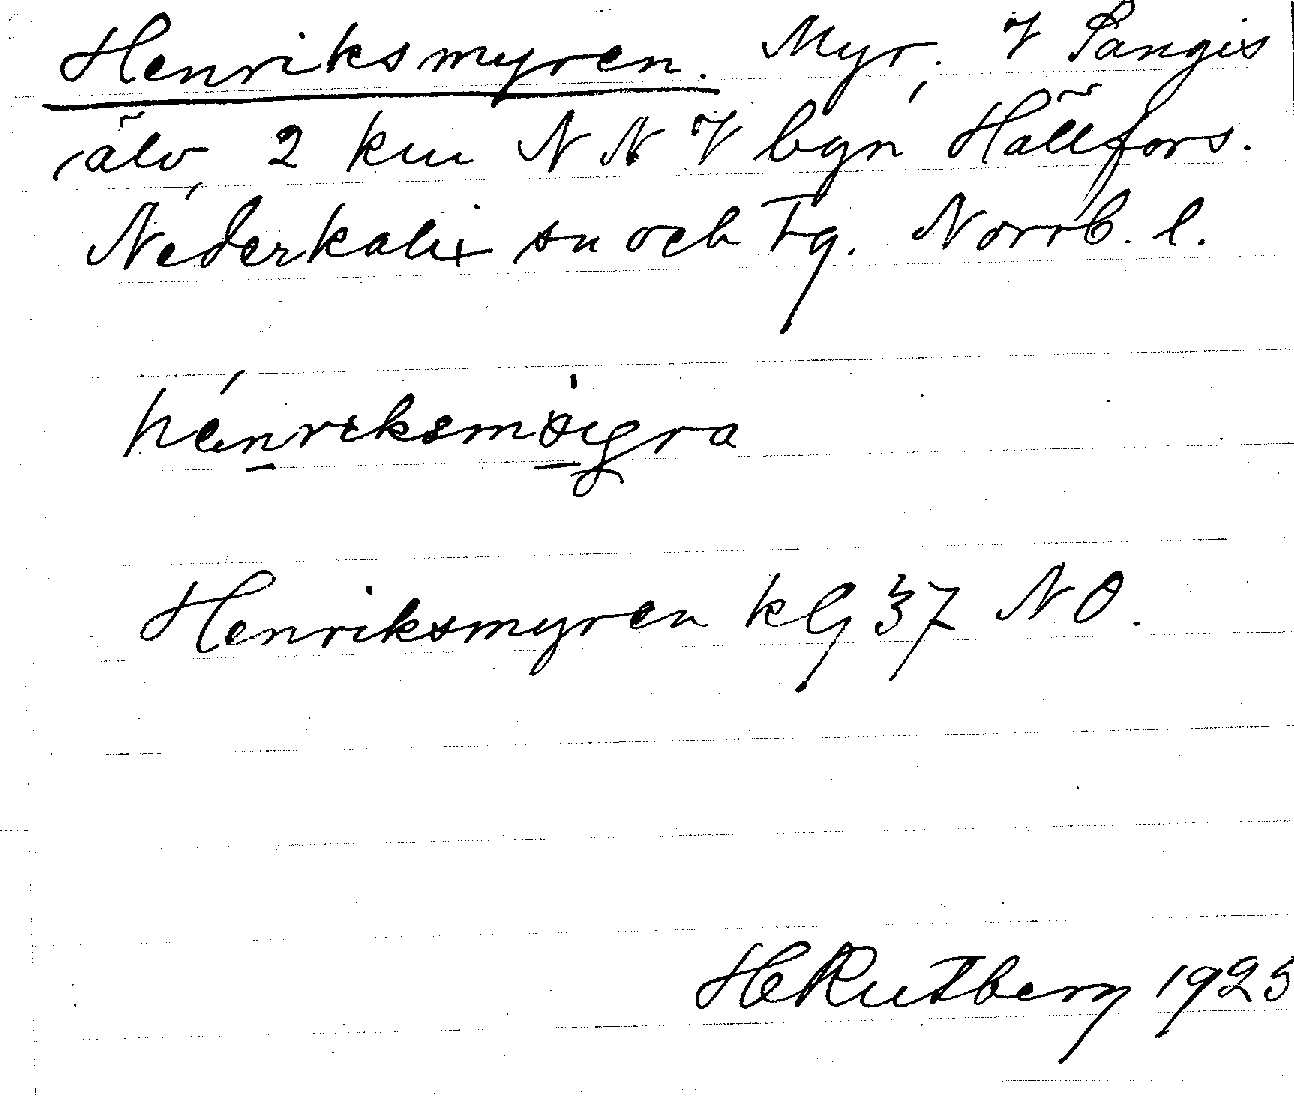 Henriksmyren. Myr, V Sangis
älv, 2 km N N V byn Hällfors.
Nederkalix sn och tg. Norrb. l.
Henriksmyren kbl 37 NO.
H Rutberg 1923